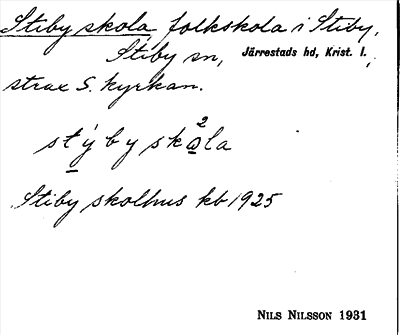 Stiby skola, folkskola i Stiby,
Stiby sn, Järrestads hd, Krist. l.,
strax S. kyrkan.
stýby sko²la
Stiby skolhus kb 1925
NILS NILSSON 1931